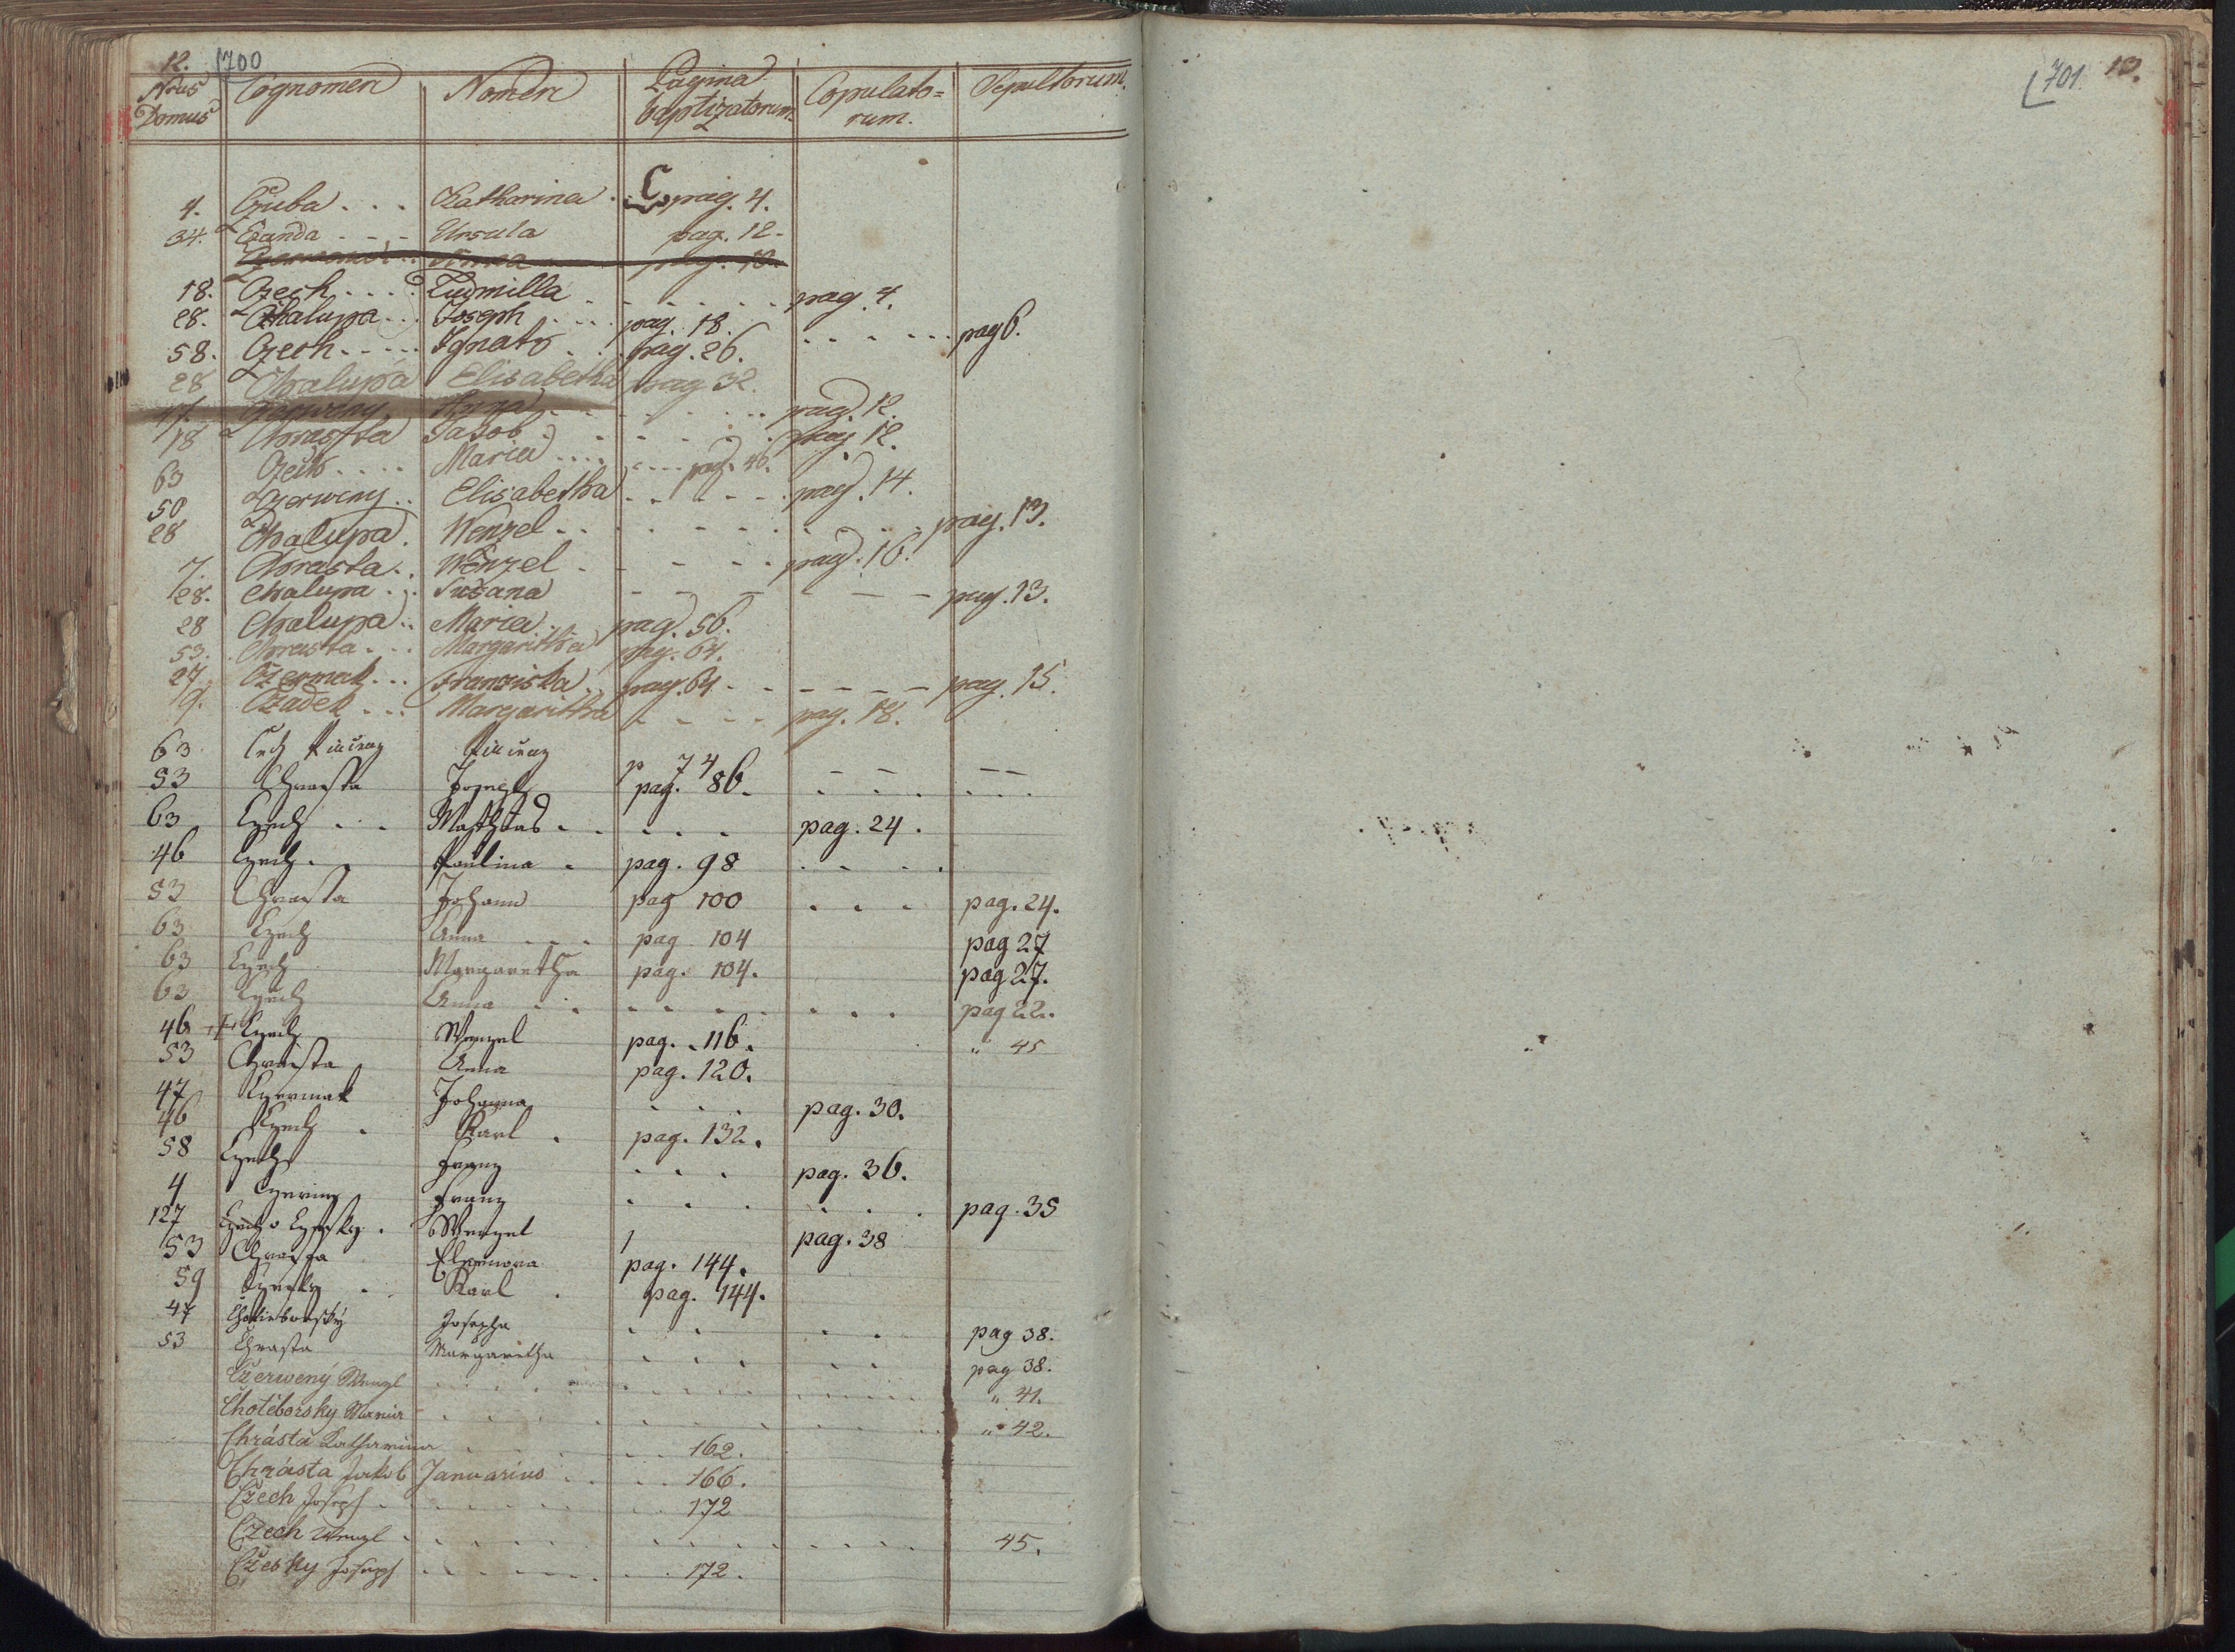 12. 700
Nrus Domus Cognomen Nomen Pagina baptizatorum Copulatorum. Sepultorum.
C
4. Czuba . . . Katharina . pag. 4.
34. Czanda - - - Ursula pag. 12.
Anna pag. 10.
18. Czech . . . . Ludmilla . . . . . . pag. 4.
28. Chalupa . . Joseph . . . pag. 18. . . . . . . pag 6.
58. Czech - - - - Ignatz . . . pag. 26.
28 Chalupa Elisabetha pag 32.
47. Czerweny Anna . . . . . . pag. 12.
18 Chrasta Jacob . . . . . . pag. 12.
63 Czech . . . . Maria . . . . . . . . pag. 46.
50 Czerweny . . Elisabetha - - - - - pag. 14.
28 Chalupa . Wenzel - - - - - - - - pag. 13.
7. Chrasta . . Wenzel - - - - - pag. 16.
28. Chalupa . . Susana - - - - - - pag. 13.
28 Chalupa . . Maria . . pag. 56.
53. Chrasta . . . Margaritha pag. 64.
27. Czermak . . . Franziska . . pag. 64 - - - - - - pag. 15.
9. Czadek . . . Margaritha - - - - pag. 18.
63 p 74 - - - -
53 Chrasta Joseph pag. 86. . . . . . . .
63 Czech . . . Mathias . . . . . . pag. 24.
46 Czech . Paulina . pag. 98 . . . .
53 Chrasta Johann pag 100 . . . pag. 24.
63 Czech Anna . . . pag 104 pag 27
63 Czech Margaretha pag. 104. pag 27.
63 Czech Anna . . . . . . . . . . . pag 22.
46 Czech Wenzel pag. . 116. " 45
53 Chrasta Anna pag. 120.
47 Czermak Johanna . . . pag. 30.
46 Czech . Karl . pag. 132.
58 Czech Franz . . . pag. 36.
4 Franz . . . . . . pag. 35
127 Czech . Wenzel pag. 38
53 Chrasta Eleonora pag. 144.
59 Czesky . Karl . pag. 144.
47 Chotieborsky Josepha . . . . pag 38.
53 Chrasta Margaretha . . . . . pag 38.
Czerwený Wenzl . . . . . . . . . . " 41.
Chotěborsky Maria . . . . . . . . . . " 42.
Chrásta Katharina . . . . 162.
Chrásta Jakob Januarius . . . . 166.
Czech Joseph . . . . . . . 172
Czech Wenzl . . . . . . . . . . . 45.
Czesky Joseph . . . . . . . 172.
701 13.